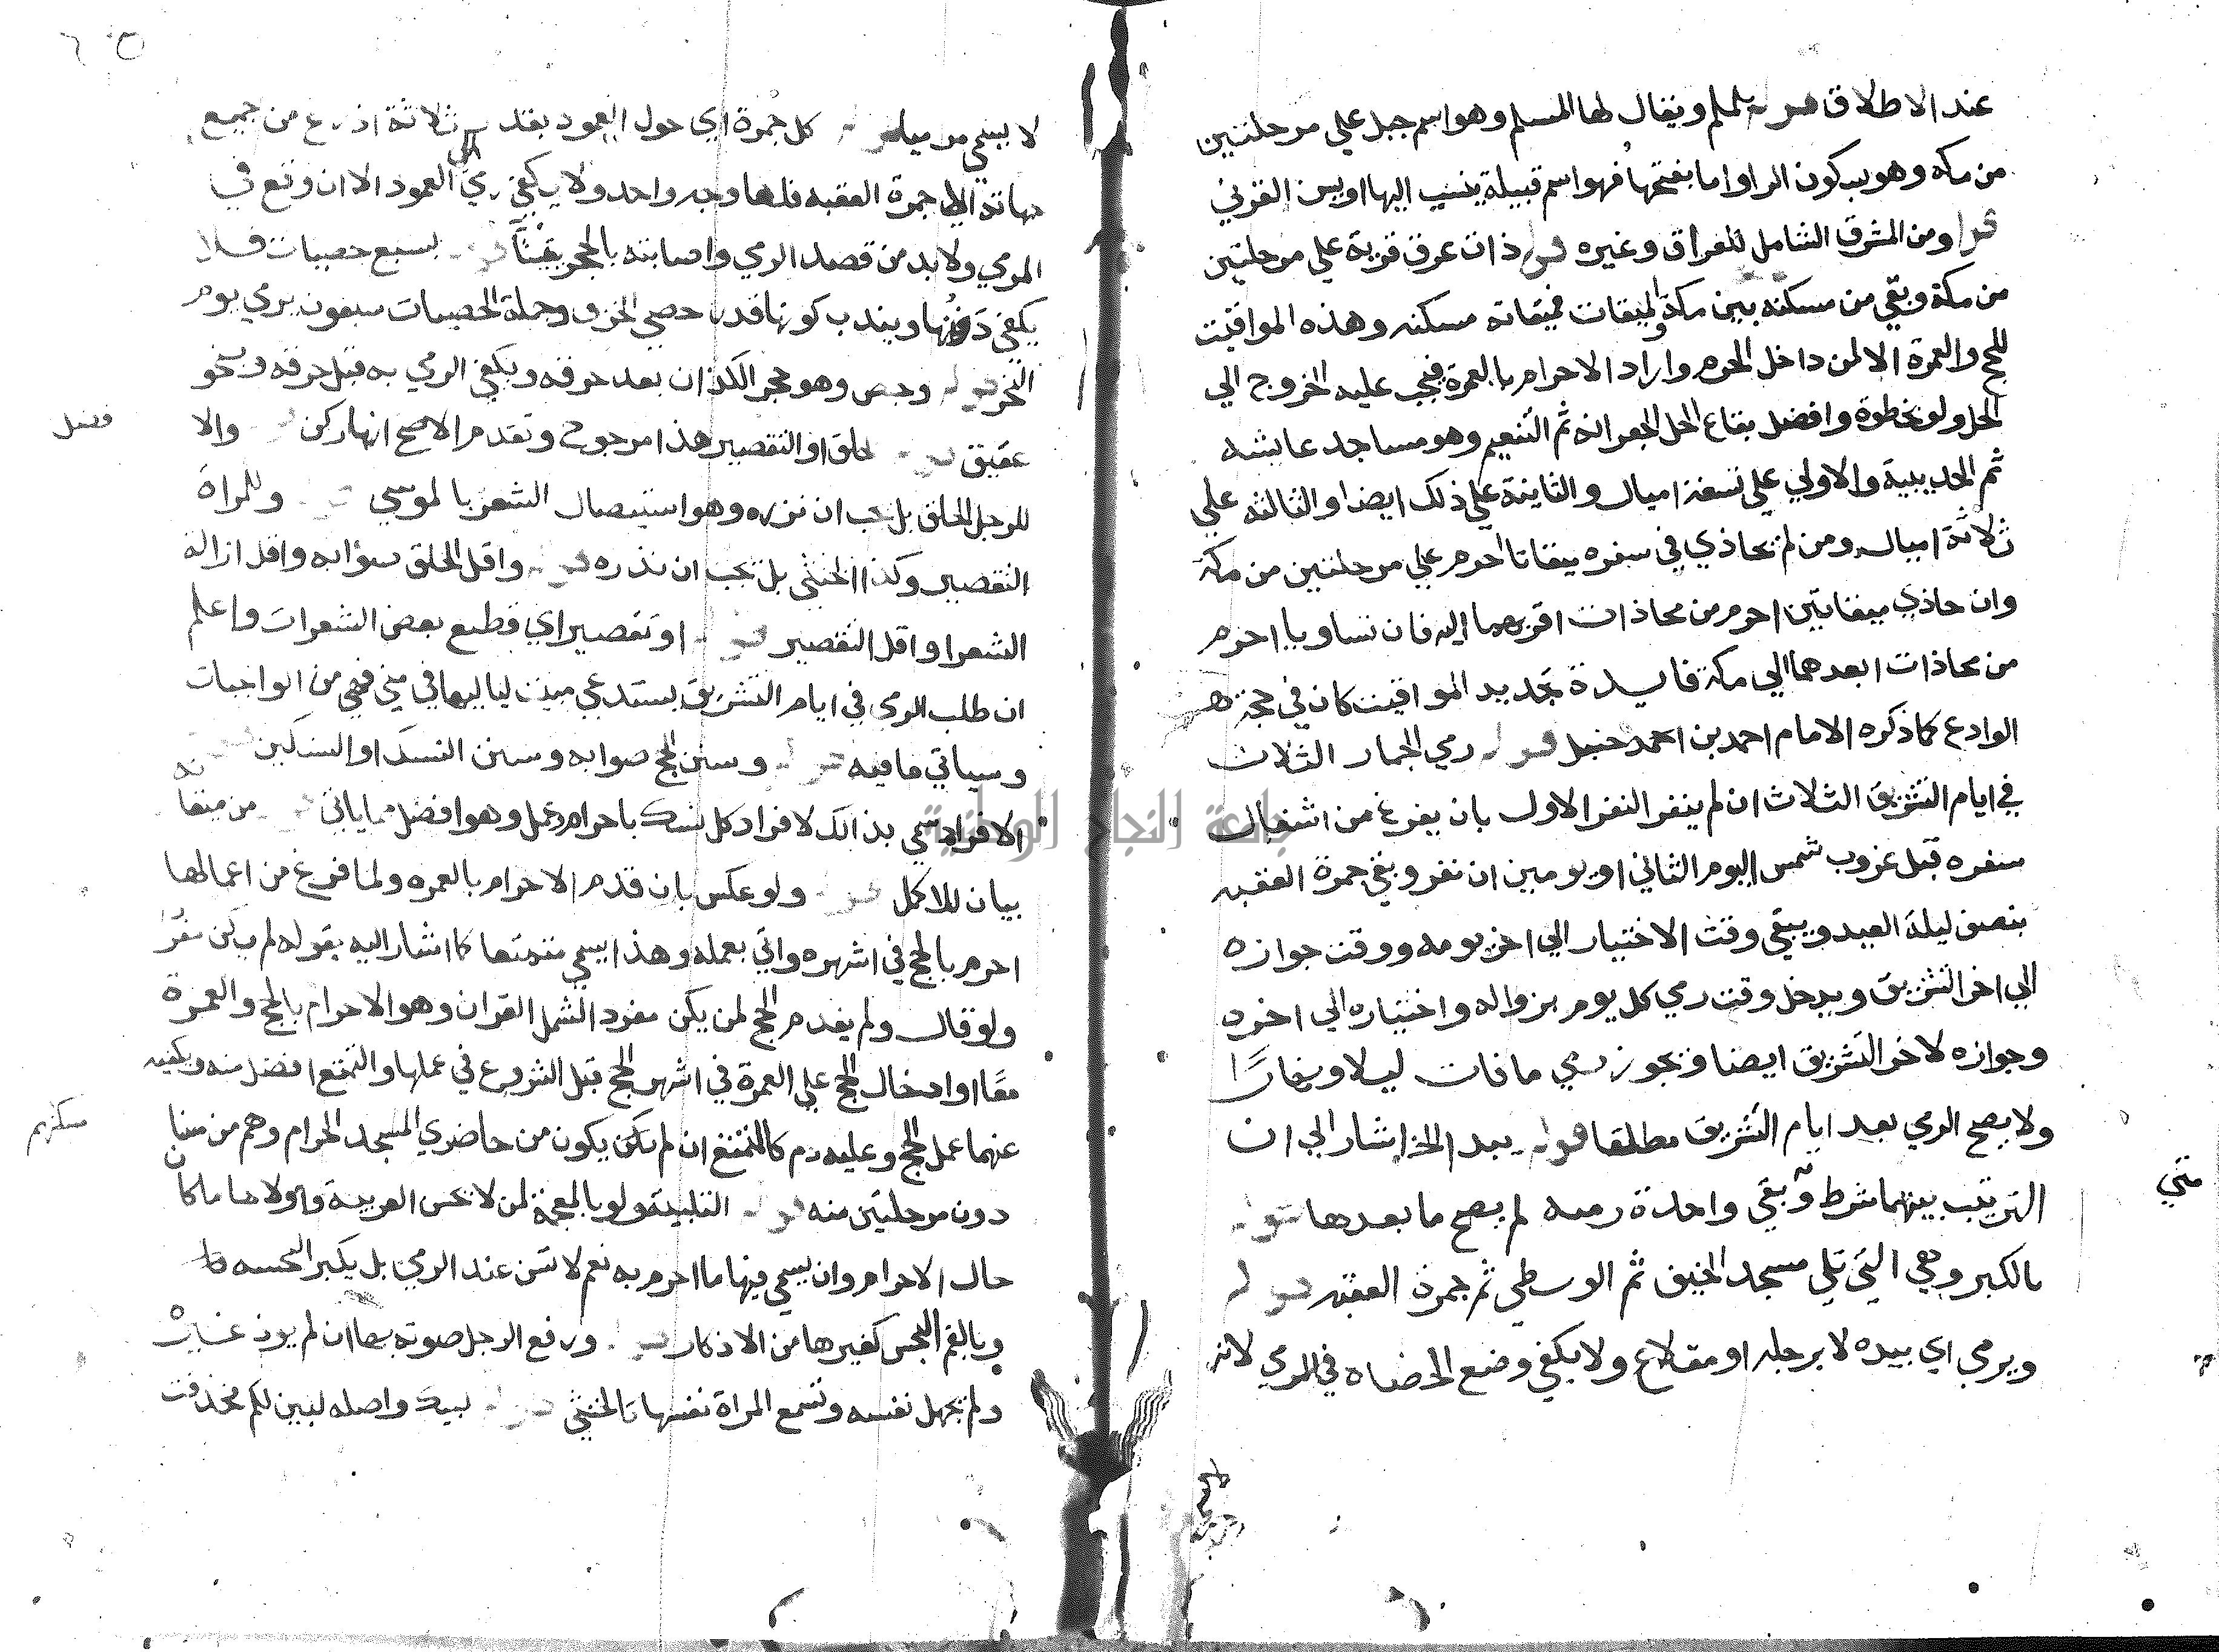 عند الاطلاق قوله يلملم ويقال لها المسلم وهو اسم جبل علي مرحلتين
من مكه وهو بسكون الرا واما بفتحها فهو اسم قبيلة ينسب اليها اويس القرني
قوله ومن المشرق الشامل للعراق وغيره قوله ذات عرق قرية علي مرحلتين
من مكة وبقي من مسكنه بين مكة والميقات فميقاته مسكنه وهذه المواقيت
للحج والعمرة الا لمن داخل الحرم واراد الاحرام بالعمرة فيجب عليه الخروج الي
الحل ولو بخطوة وافضل بقاع الحل الجعرانه ثم التنعيم وهو مساجد عايشه
ثم الحديبية والاولي علي تسعة اميال والثانية علي ذلك ايضا والثالثه علي
ثلاثة اميال ومن لم يحاذي في سفره ميقاتا احرم علي مرحلتين من مكة
وان حاذي ميقاتين احرم من محاذات اقربهما اليه فان تساويا احرم
من محاذات ابعدهما الي مكة فايدة تجديد المواقيت كان في حجة
الوادع كما ذكره الامام احمد بن احمد حنبل قوله رمي الجمار الثلاث
في ايام التشريق الثلاث ان لم ينفر النفر الاول بان يفرغ من اشغال
سفره قبل غروب شمس اليوم الثاني او يومين ان نفر وبقي جمرة العقبه
بنصف ليلة العيد ويبقي وقت الاختيار الي اخر يومه ووقت جوازه
الي اخر التشريق ويدخل وقت رمي كل يوم بزواله واختياره الي اخره
وجوازه لاخر التشريق ايضا ويجوز رمي ما فات ليلا ونهارًا
ولا يصح الرمي بعد ايام التشريق مطلقا قوله يبدا الخ اشار الي ان
الترتيب بينهما شرط وبقي واحدة رميه لم يصح ما بعدها قوله
متي
بالكبر وهي التي تلي مسجد الخيف ثم الوسطي ثم جمرة العقبه قوله
ويرمي اي بيده لا برجله او مقلاع ولا يكفي وضع الحصاه في المرمي لانه
٦٥
لا يسمي رميا قوله كل جمرة اي حول العمود بقدر ثلاثة اذرع من جميع
جهاته الا جمرة العقبه فلها وجه واحد ولا يكفي رمي العمود الا ان وقع في
المرمي ولا بد من قصد الرمي واصابته بالحجر يقينًا قوله بسبع حصيات فلا
يكفي دونها ويندب كونها قدر حصي الخزف وجملة الحصيات سبعون يرمي يوم
النحر قوله وجص وهو حجر الكذان بعد حرقه ويكفي الرمي به قبل حرقه وبنحو
عقيق قوله الحلق او التقصير هذا مرجوح وتقدم الاصح انها ركن قوله والا
فضل
للرجل الحلق بل يجب ان نزره وهو استيصال الشعر بالموسي قوله وللمراة
التقصير وكذا الخنثي بل يجب ان نذره قوله واقل الحلق سؤابه واقل ازالة
الشعر او اقل التقصير قوله او تقصير اي قطع بعض الشعرات واعلم
ان طلب الرمي في ايام التشريق يستدعي مبيت لياليها في مني فهي من الواجبات
وسياتي ما فيه قوله وسنن الحج صوابه وسنن النسك او النسكين قوله
الافراد سمي بذالك لافراد كل نسك باحرام وعمل وهو افضل مما ياتي قوله من ميقاته
بيان للاكمل قوله ولو عكس بان قدم الاحرام بالعمره ولما فرغ من اعمالها
احرم بالحج في اشهره واتي بعمله وهذا يسمي متمتعا كما اشار اليه بقوله لم يكن مفرد
ولو قال ولم يقدم الحج لمن يكن مفرد الشمل القران وهو الاحرام بالحج والعمرة
معًا او ادخال الحج علي العمرة في اشهر الحج قبل الشروع في عملها والتمتع افضل منه ويكفيه
عنهما عمل الحج وعليه دم كالمتمتع ان لم يكن يكون من حاضري المسجد الحرام وهم من
مسكنهم
دون مرحلتين منه قوله التلبية ولو بالعجمة لمن لا يحس العربية واولاها ما كان
حال الاحرام وان يسمي فيها ما احرم به نعم لا تسن عند الرمي بل يكبر
وبالفم النجس كغيرها من الاذكار قوله ورفع الرجل صوته بها ان لم يوذ غيره
ولم يجهل نفسه وتسمع المراة نفسها كالخنثي قوله لبيك واصله لبين لكم فحذفت
جامعة النجاح الوطنية